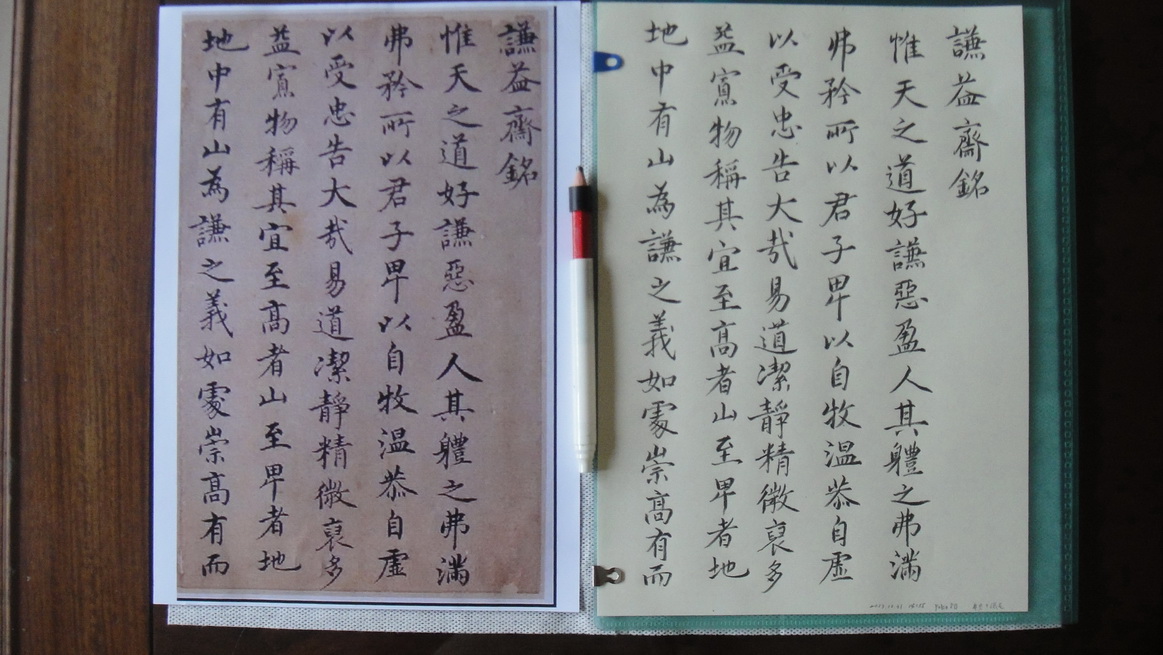 謙益齋銘
惟天之道好謙惡盈人其軆之弗滿
弗矜所以君子卑以自牧溫恭自虛
以受忠告大哉易道潔靜精微裒多
益寡物稱其宜至高者山至卑者地
地中有山為謙之義如處崇高有而
謙益齋銘
惟天之道好謙惡盈人其軆之弗滿
弗矜所以君子卑以自牧溫恭自虛
以受忠告大哉易道潔靜精微裒多
益寡物稱其宜至高者山至卑者地
地中有山為謙之義如處崇高有而